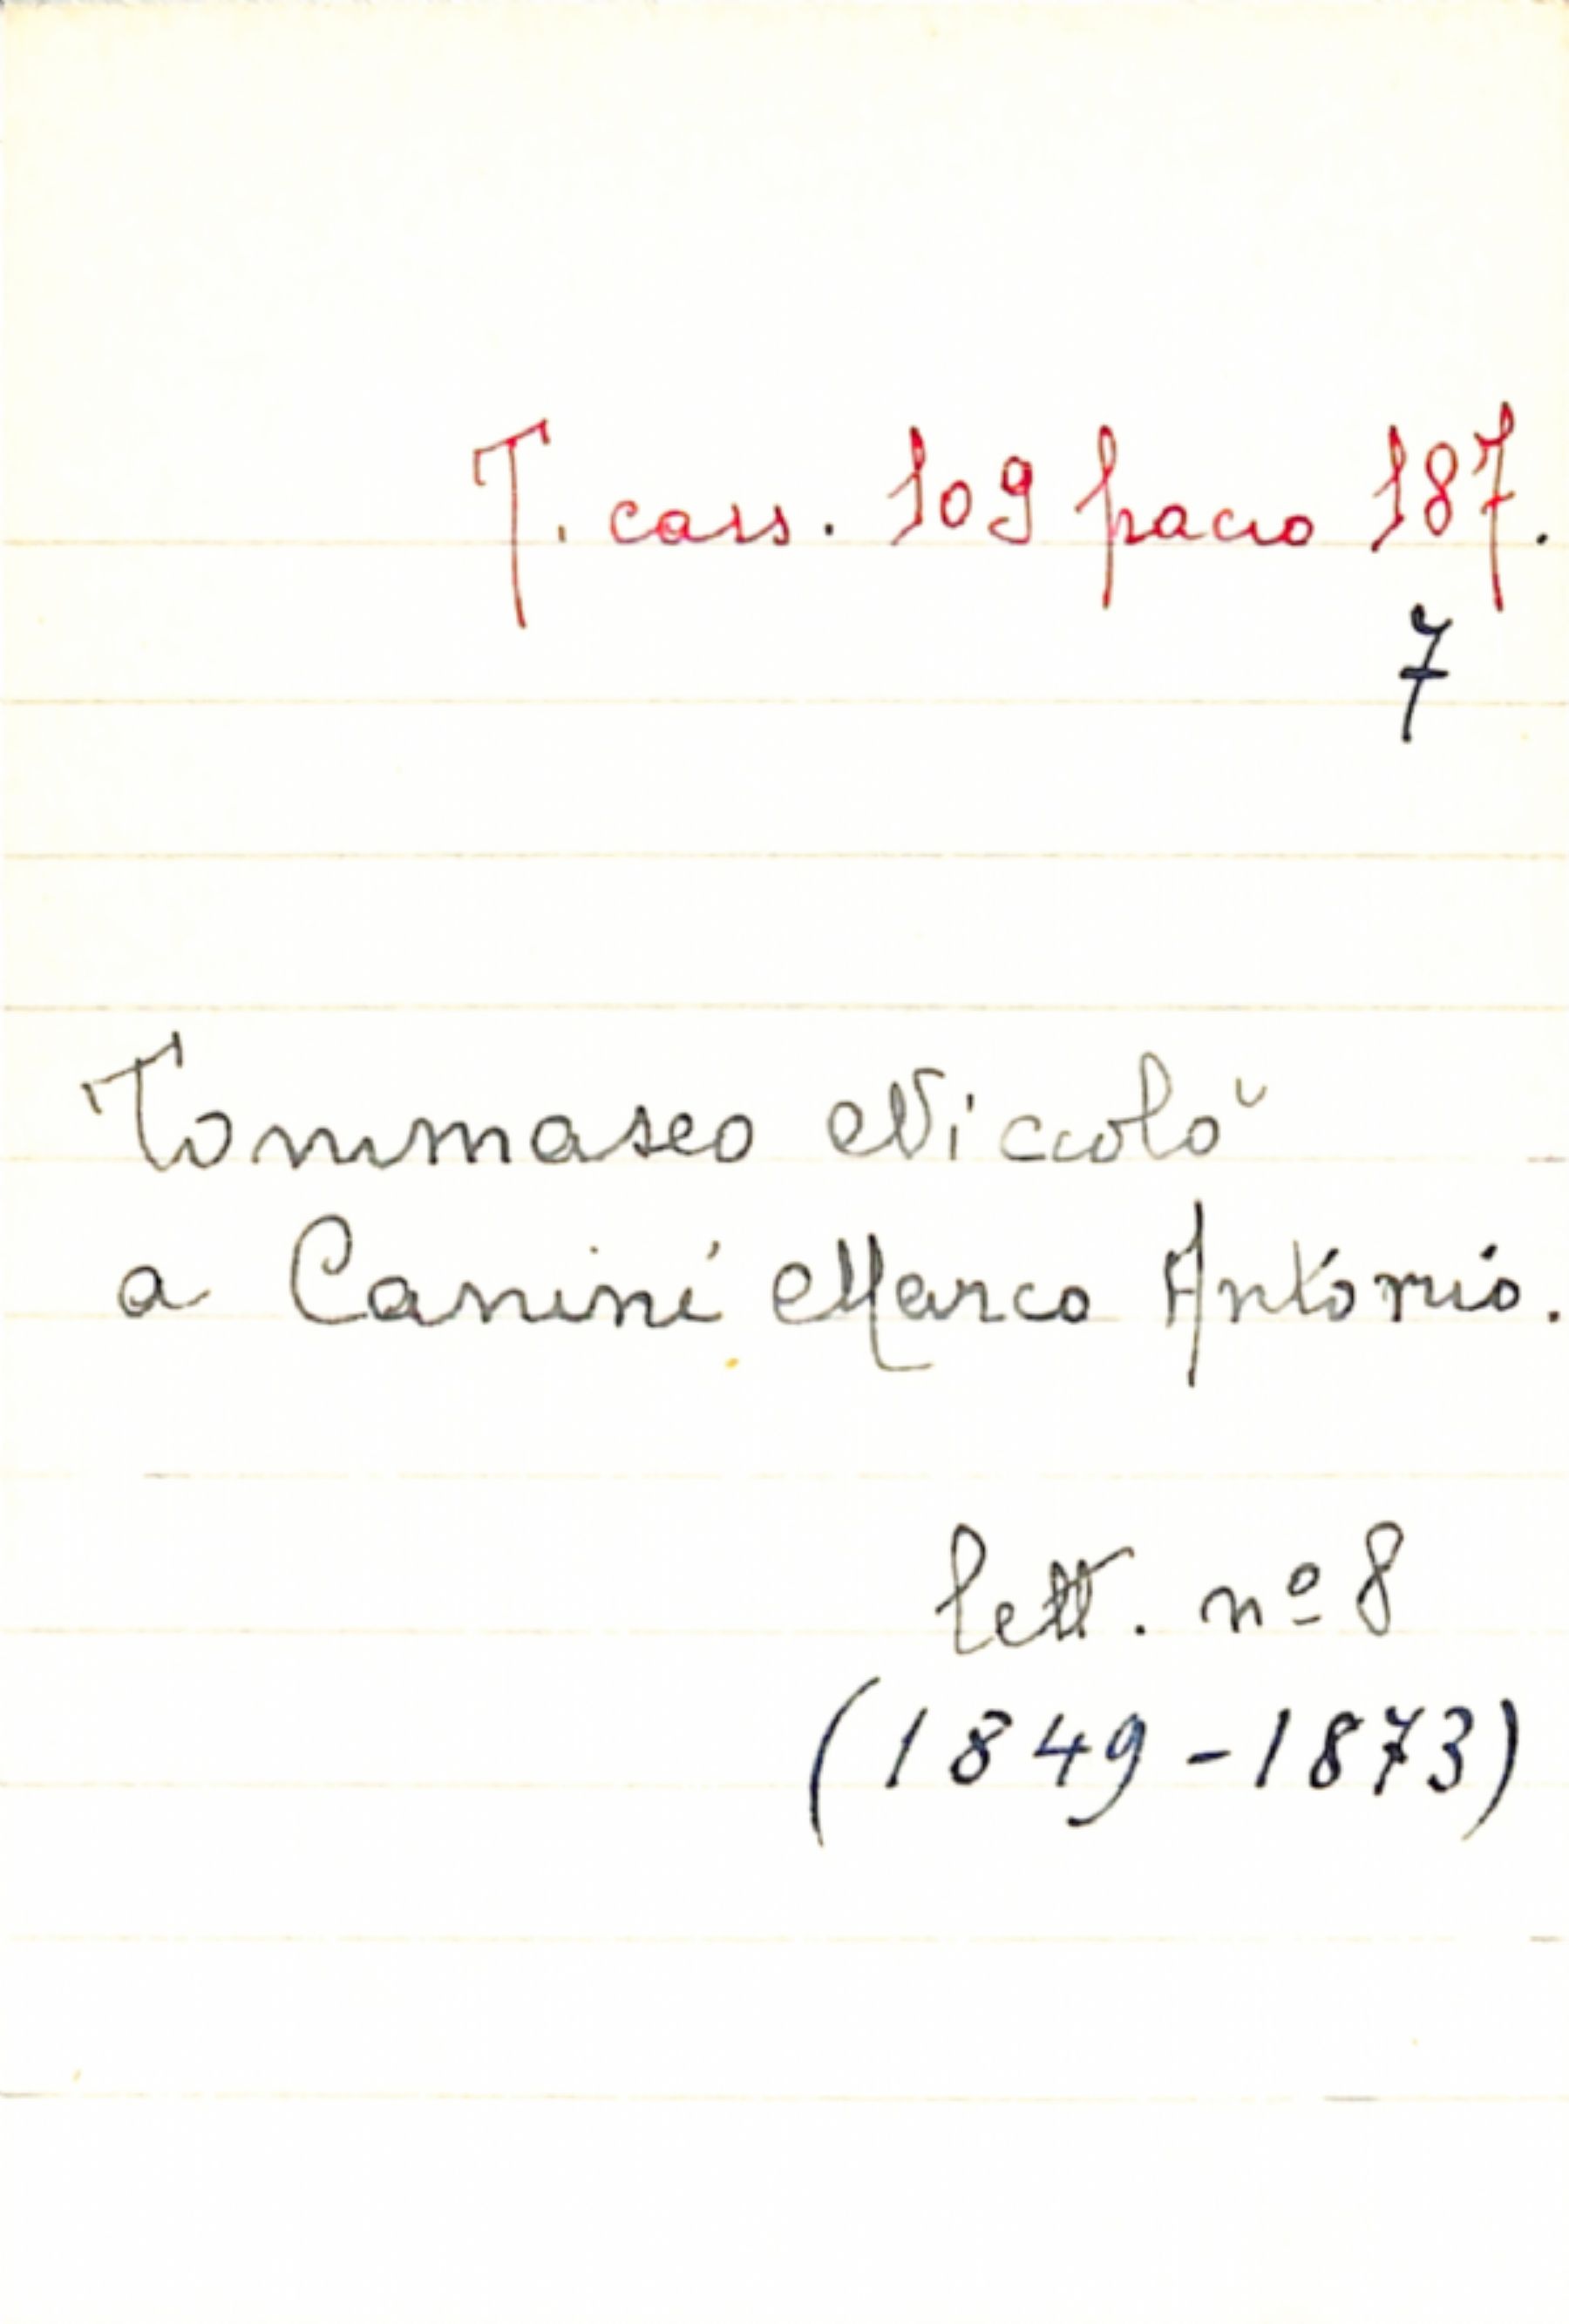 T. cass. 109 pacco 187.
7
Tommaseo Niccolò
a Canini Marco Antonio.
lett. nº 8
(1849-1873)